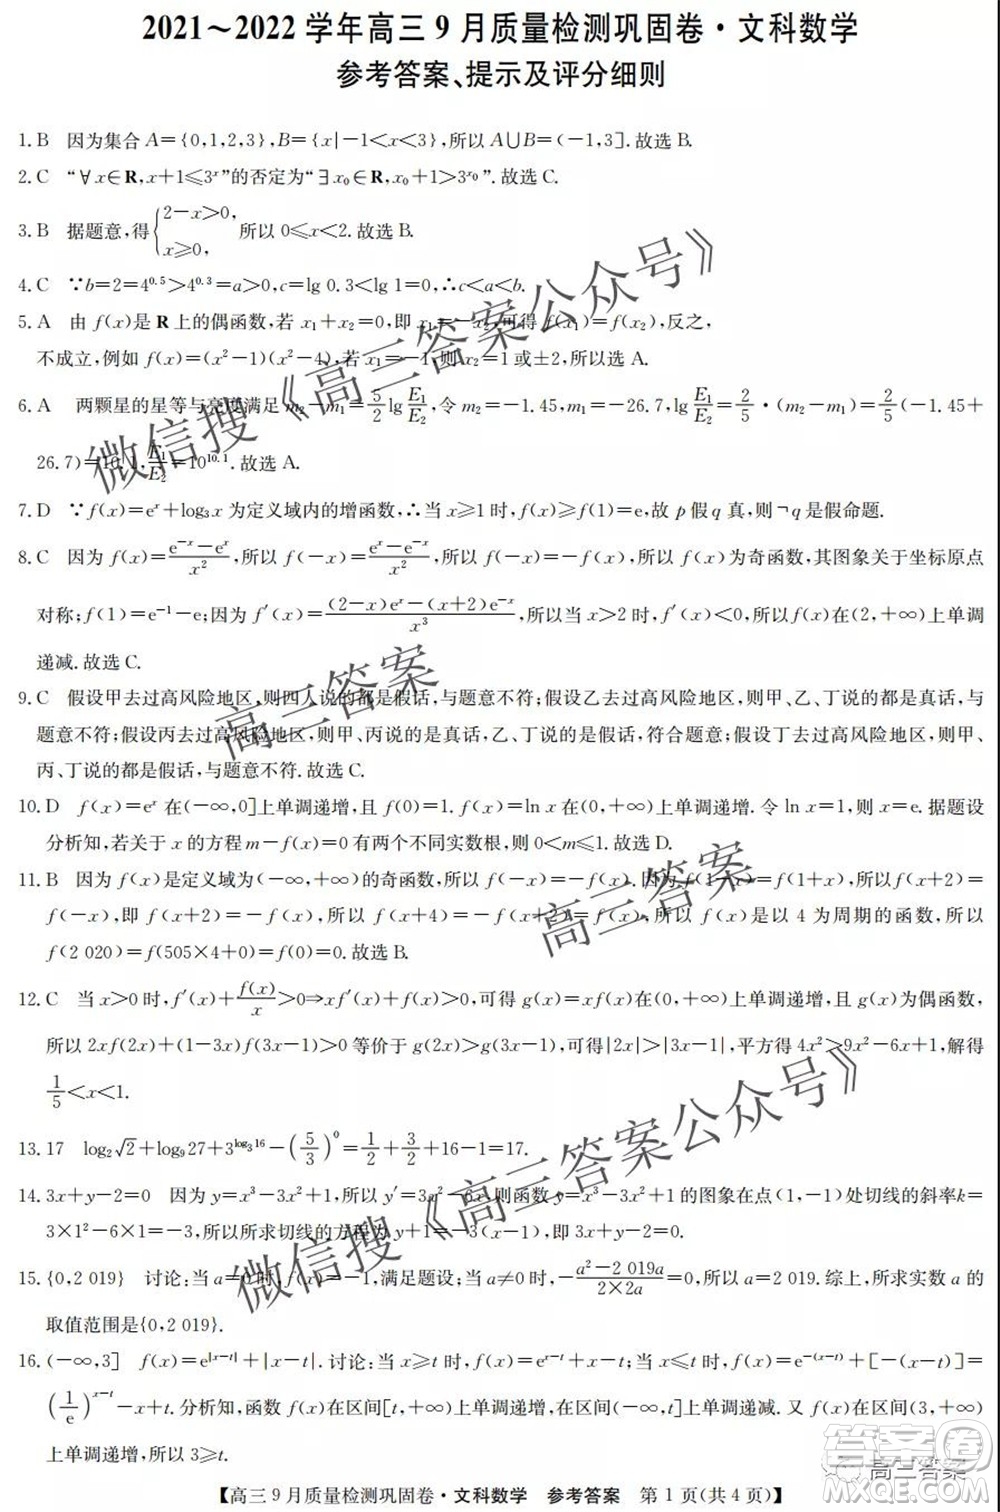 2021～2022 学年高三 9 月质量检测巩固卷·文科数学
参考答案、提示及评分细则
1. B 因为集合 A={0,1,2,3},B={x|-1<x<3},所以 A∪B=(-1,3].故选 B.
2. C “∀x∈R,x+1≤3^x”的否定为“∃x₀∈R,x₀+1>3^{x₀}”.故选 C.
3. B 据题意,得{2-x>0, x≥0, 所以 0≤x<2.故选 B.
4. C ∵b=2=4^{0.5}>4^{0.3}=a>0,c=lg 0.3<lg 1=0,∴c<a<b.
5. A 由 f(x)是 R 上的偶函数,若 x₁+x₂=0,即 x₁=-x₂,可得 f(x₁)=f(x₂),反之,
不成立,例如 f(x)=(x²-1)(x²-4),若 x₁=-1,则 x₂=1 或±2,所以选 A.
6. A 两颗星的星等与亮度满足 m₂-m₁=5/2 lg E₁/E₂,令 m₂=-1.45,m₁=-26.7,lg E₁/E₂=2/5·(m₂-m₁)=2/5(-1.45+
26.7)=10.1,E₁/E₂=10^{10.1}.故选 A.
7. D ∵f(x)=e^x+log₃x 为定义域内的增函数,∴当 x≥1 时,f(x)≥f(1)=e,故 p 假 q 真,则¬q 是假命题.
8. C 因为 f(x)=(e^{-x}-e^x)/x²,所以 f(-x)=(e^x-e^{-x})/x²,所以 f(-x)=-f(x),所以 f(x)为奇函数,其图象关于坐标原点
对称;f(1)=e^{-1}-e;因为 f′(x)=((2-x)e^x-(x+2)e^{-x})/x³,所以当 x>2 时,f′(x)<0,所以 f(x)在(2,+∞)上单调
递减.故选 C.
9. C 假设甲去过高风险地区,则四人说的都是假话,与题意不符;假设乙去过高风险地区,则甲、乙、丁说的都是真话,与
题意不符;假设丙去过高风险地区,则甲、丙说的是真话,乙、丁说的是假话,符合题意;假设丁去过高风险地区,则甲、
丙、丁说的都是假话,与题意不符.故选 C.
10. D f(x)=e^x 在(-∞,0]上单调递增,且 f(0)=1. f(x)=ln x 在(0,+∞)上单调递增.令 ln x=1,则 x=e.据题设
分析知,若关于 x 的方程 m-f(x)=0 有两个不同实数根,则 0<m≤1.故选 D.
11. B 因为 f(x)是定义域为(-∞,+∞)的奇函数,所以 f(-x)=-f(x).因为 f(1-x)=f(1+x),所以 f(x+2)=
f(-x),即 f(x+2)=-f(x),所以 f(x+4)=-f(x+2)=f(x),所以 f(x)是以 4 为周期的函数,所以
f(2 020)=f(505×4+0)=f(0)=0.故选 B.
12. C 当 x>0 时,f′(x)+f(x)/x>0⇒xf′(x)+f(x)>0,可得 g(x)=xf(x)在(0,+∞)上单调递增,且 g(x)为偶函数,
所以 2xf(2x)+(1-3x)f(3x-1)>0 等价于 g(2x)>g(3x-1),可得|2x|>|3x-1|,平方得 4x²>9x²-6x+1,解得
1/5<x<1.
13. 17 log₂√2+log₉27+3^{log₃16}-(5/3)⁰=1/2+3/2+16-1=17.
14. 3x+y-2=0 因为 y=x³-3x²+1,所以 y′=3x²-6x,则函数 y=x³-3x²+1 的图象在点(1,-1)处切线的斜率k=
3×1²-6×1=-3,所以所求切线的方程为 y+1=-3(x-1),即 3x+y-2=0.
15. {0,2 019} 讨论:当 a=0 时,f(x)=-1,满足题设;当 a≠0 时,-(a²-2 019a)/(2×2a)=0,所以 a=2 019.综上,所求实数 a 的
取值范围是{0,2 019}.
16. (-∞,3] f(x)=e^{|x-t|}+|x-t|.讨论:当 x≥t 时,f(x)=e^{x-t}+x-t;当 x≤t 时,f(x)=e^{-(x-t)}+[-(x-t)]=
(1/e)^{x-t}-x+t.分析知,函数 f(x)在区间[t,+∞)上单调递增,在区间(-∞,t]上单调递减.又 f(x)在区间(3,+∞)
上单调递增,所以 3≥t.
【高三 9 月质量检测巩固卷·文科数学 参考答案 第 1 页(共 4 页)】
微信搜《高三答案公众号》
高三答案
高三答案
微信搜《高三答案公众号》
高三答案
答案圈